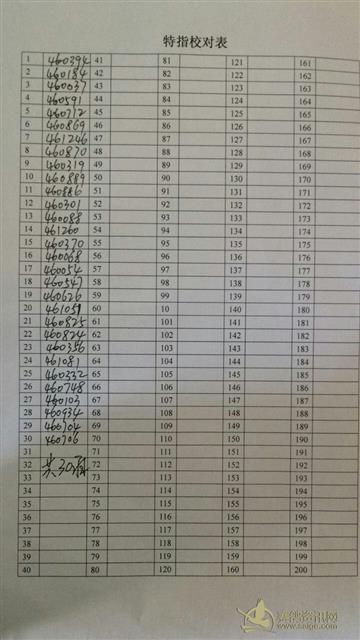 特指校对表
1 460394 41 81 121 161
2 460184 42 82 122 162
3 460037 43 83 123 163
4 460591 44 84 124 164
5 460712 45 85 125 165
6 460869 46 86 126 166
7 461246 47 87 127 167
8 460870 48 88 128 168
9 460319 49 89 129 169
10 460889 50 90 130 170
11 460886 51 91 131 171
12 460301 52 92 132 172
13 460088 53 93 133 173
14 461260 54 94 134 174
15 460370 55 95 135 175
16 460068 56 96 136 176
17 460054 57 97 137 177
18 460547 58 98 138 178
19 460626 59 99 139 179
20 461051 60 10 140 180
21 460825 61 101 141 181
22 460824 62 102 142 182
23 460356 63 103 143 183
24 461081 64 104 144 184
25 460332 65 105 145 185
26 460748 66 106 146 186
27 460103 67 107 147 187
28 460934 68 108 148 188
29 460704 69 109 149 189
30 460706 70 110 150 190
31 71 111 151 191
32 共30羽 72 112 152 192
33 73 113 153 193
34 74 114 154 194
35 75 115 155 195
36 76 116 156 196
37 77 117 157 197
38 78 118 158 198
39 79 119 159 199
40 80 120 160 200
赛鸽资讯网
www.saige.com